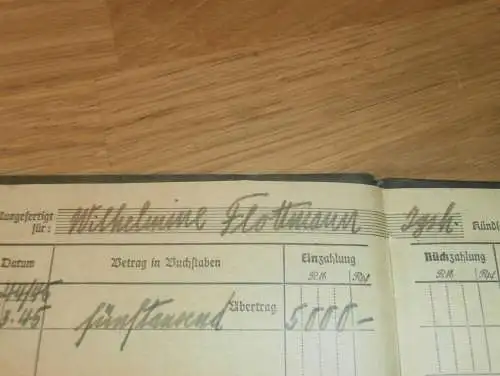 Ausgefertigt für: Wilhelmine Flottmann Kündi
Datum Betrag in Buchstaben Einzahlung Rückzahlung
R.M. Rpf R.M. Rpf
44/45
3.'45 fünftausend Übertrag 5000 –